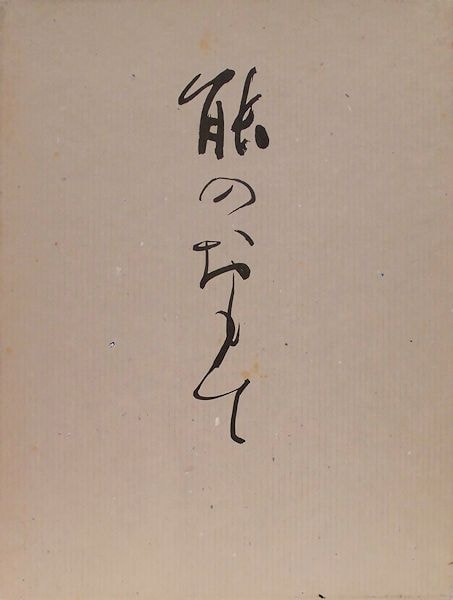 能のおもて